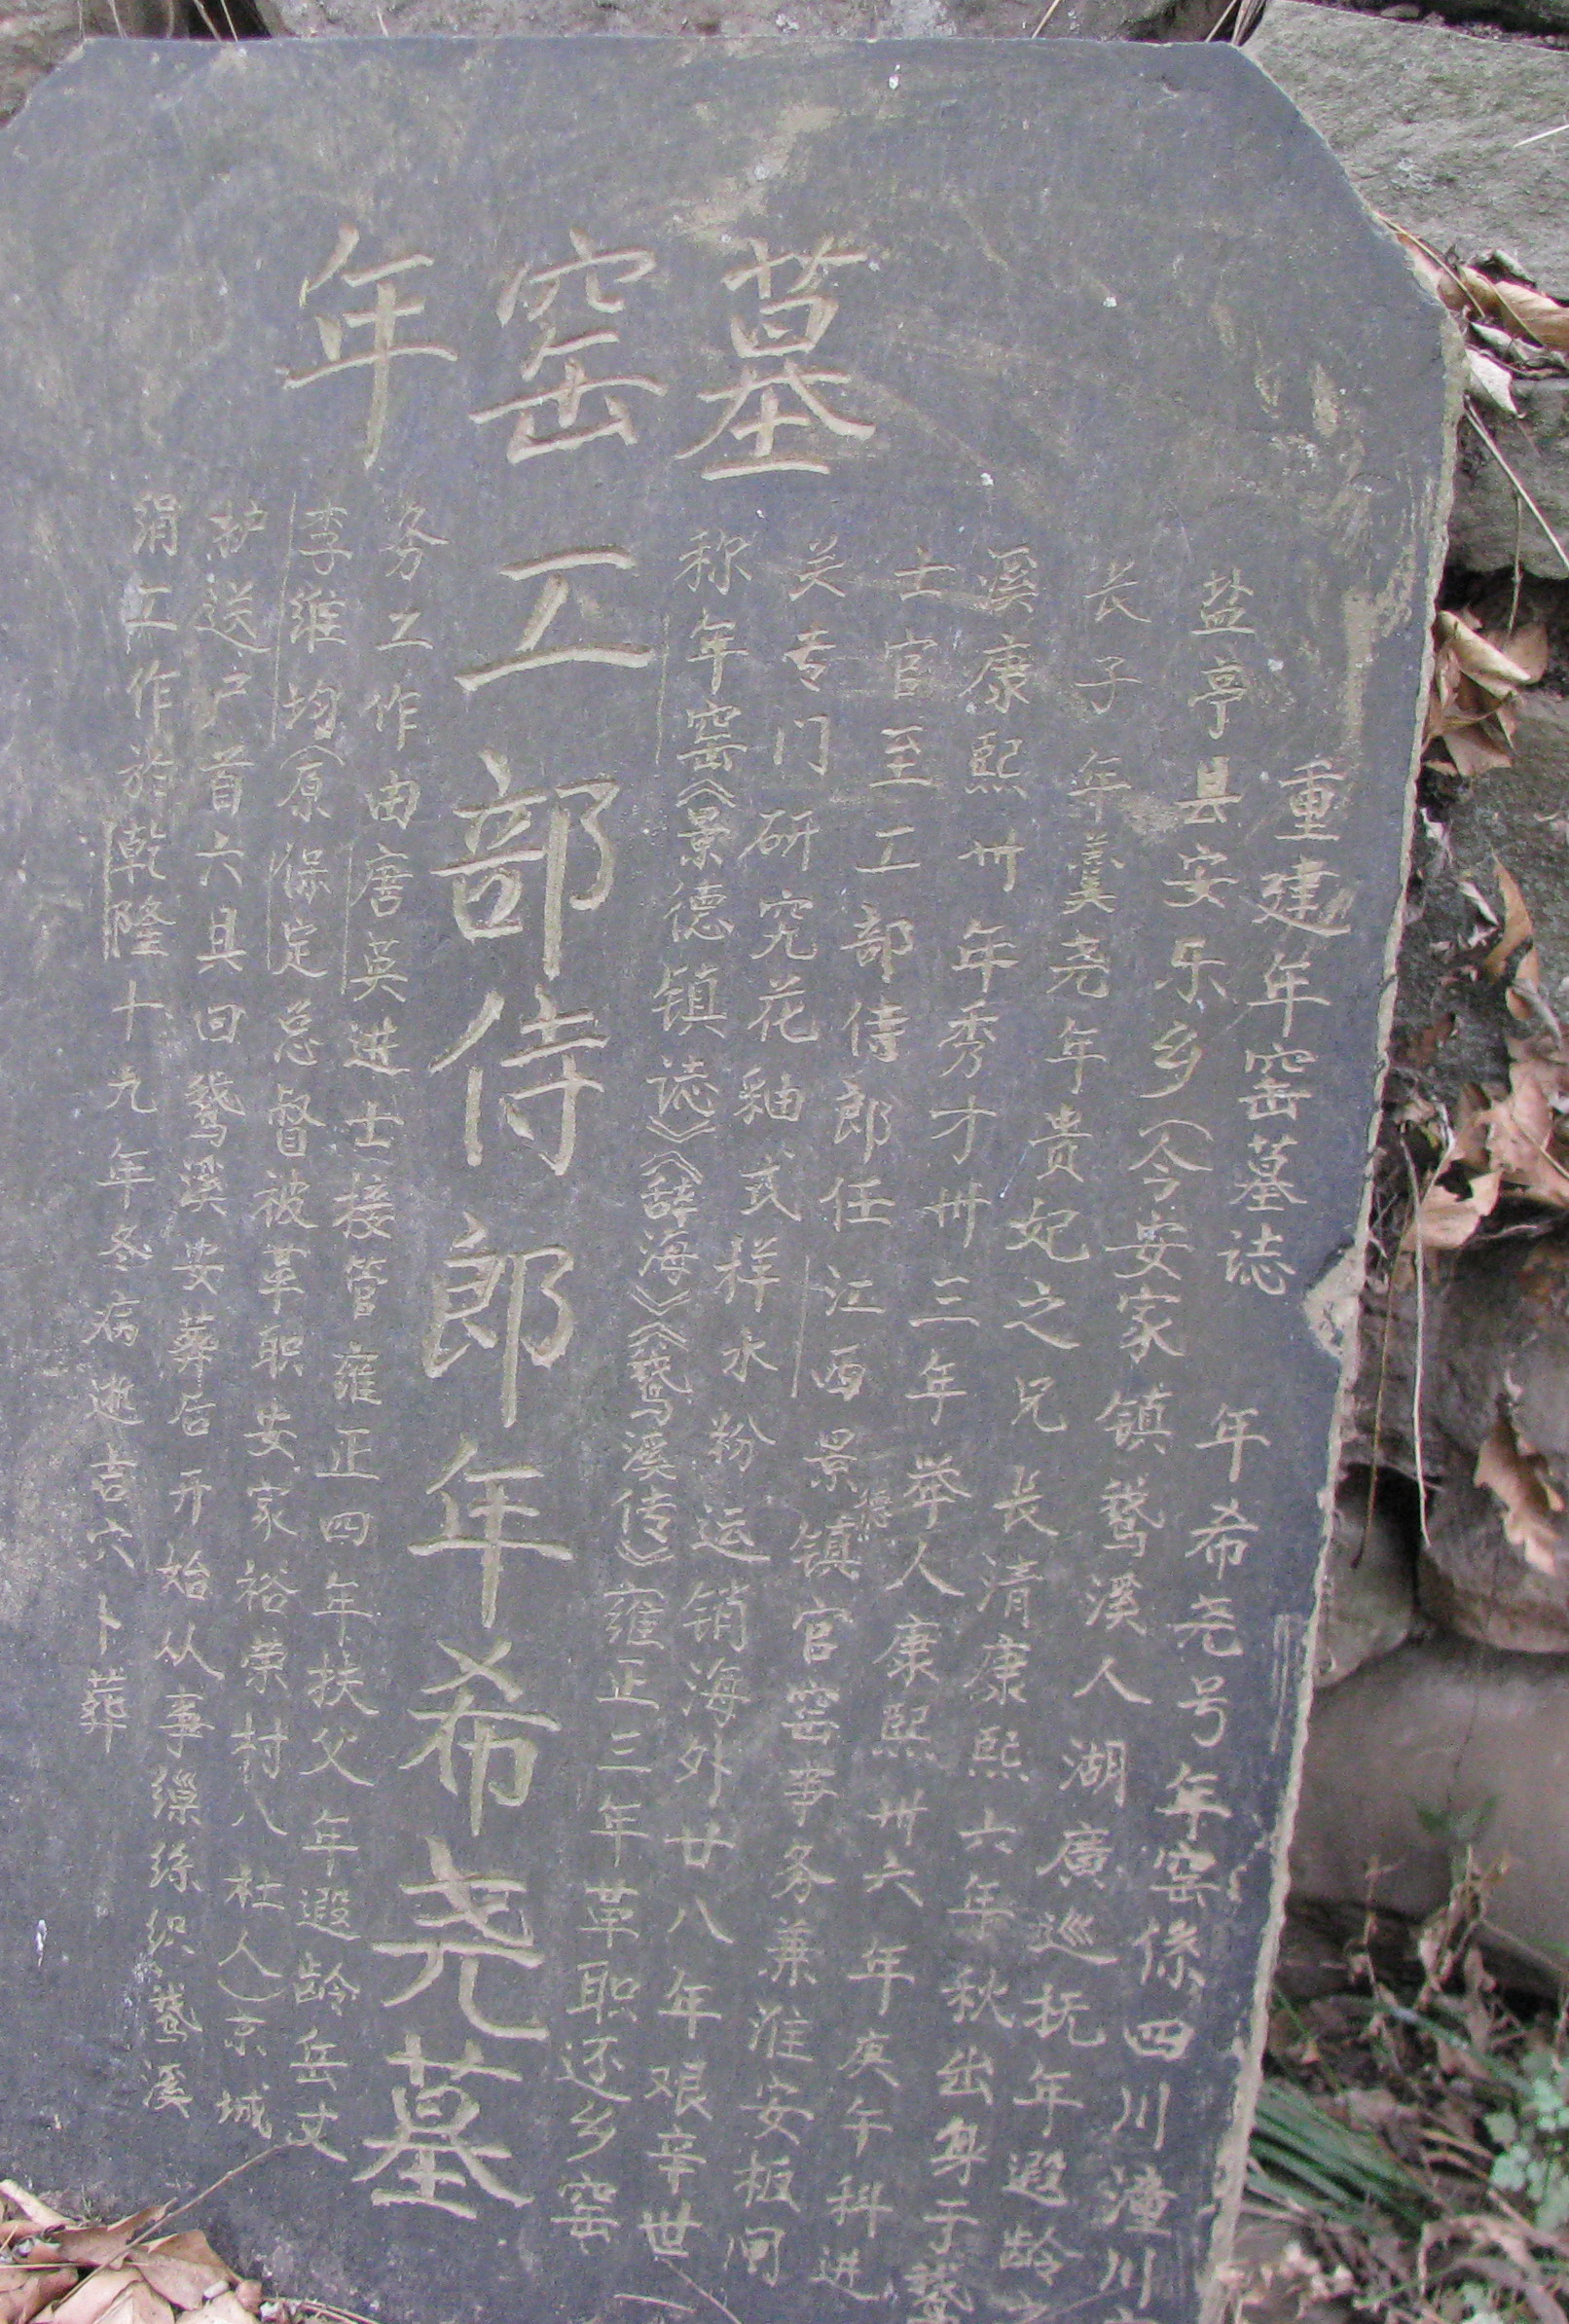 年窑墓
重建年窑墓誌
年希尧号年窑係四川潼川
盐亭县安乐乡（今安家镇鹅溪人湖廣巡抚年遐龄
长子年羹尧年贵妃之兄长清康熙六年秋出身于鹅
溪康熙卅年秀才卅三年举人康熙卅六年庚午科进
士官至工部侍郎任江西景德镇官窑事务兼淮安板闸
关专门研究花釉瓷样水粉运销海外廿八年艰辛世
称年窑《景德镇誌》《辞海》《鹅溪传》雍正三年革职还乡窑
工部侍郎年希尧墓
务工作由唐英进士接管雍正四年扶父年遐龄岳丈
李维均（原保定总督被革职安家裕荣村八杜人）京城
护送尸首六具回鹅溪安葬后开始从事缫絲织鹅溪
涓工作於乾隆十九年冬病逝吉穴卜葬